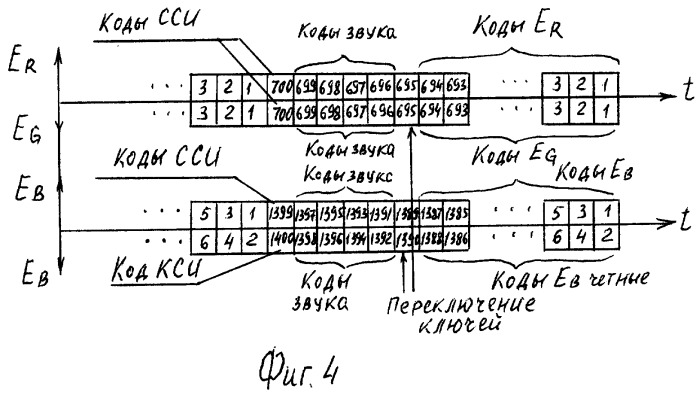 Коды ССИ
Коды звука
Коды ER
ER
... 3 2 1 700 699 698 697 696 695 694 693 ... 3 2 1
t
... 3 2 1 700 699 698 697 696 695 694 693 ... 3 2 1
EG
Коды звука
Коды EG
Коды ССИ
Коды звукс
Коды EB
EB
... 5 3 1 1399 1397 1395 1393 1391 1389 1387 1385 ... 5 3 1
t
... 6 4 2 1400 1398 1396 1394 1392 1390 1388 1386 ... 6 4 2
EB
Код КСИ
Коды звука
Переключение ключей
Коды EB четные
Фиг. 4